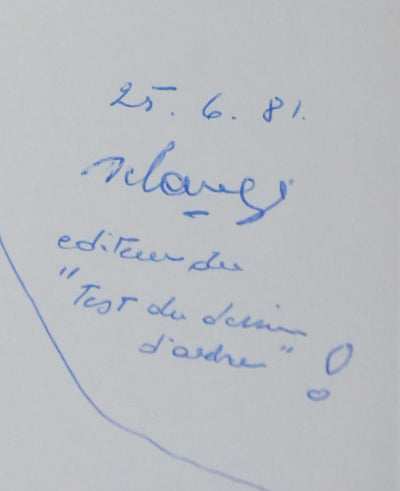 25. 6. 81.
editeur du
"Test du dessin
d'arbre" !